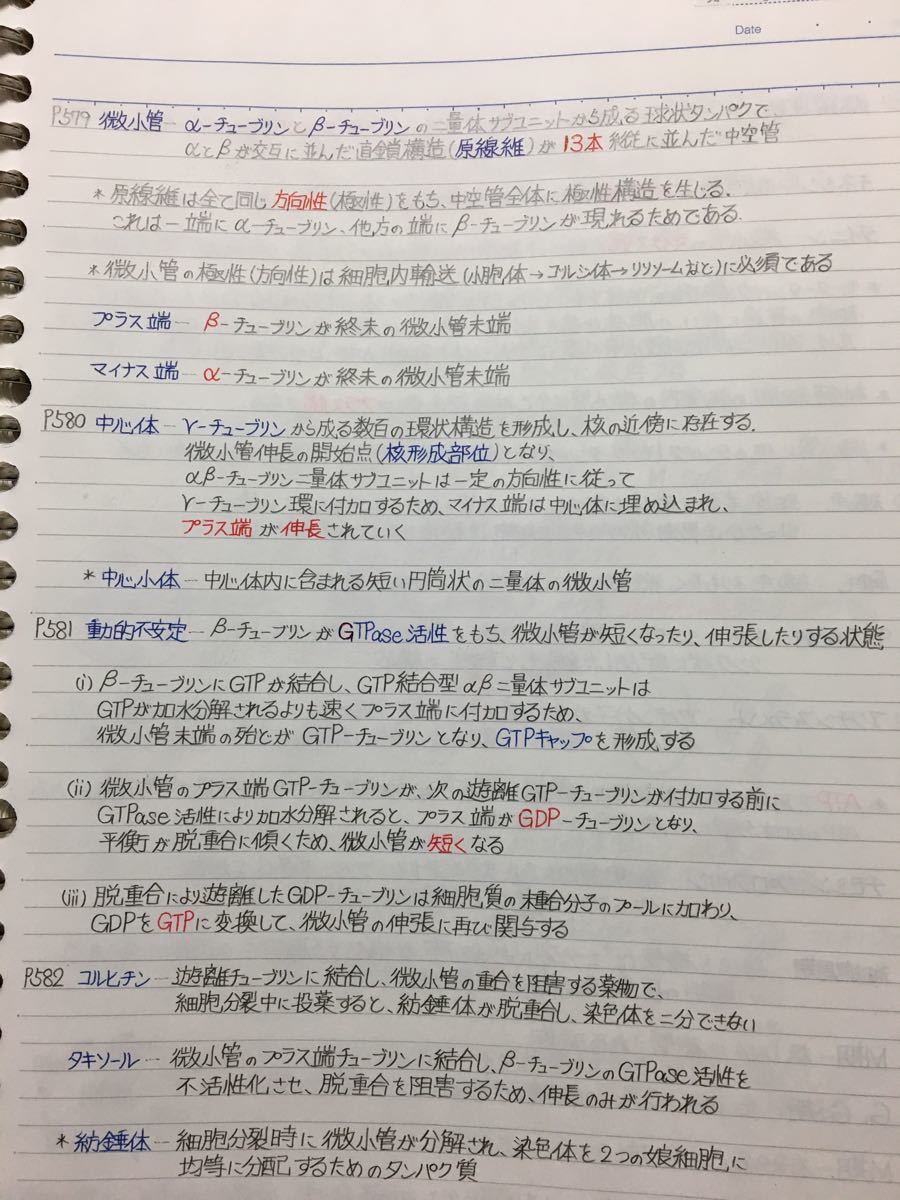 Date
P579 微小管 — α-チューブリンとβ-チューブリンの二量体サブユニットから成る球状タンパクで
αとβが交互に並んだ直鎖構造(原線維)が13本縦に並んだ中空管
* 原線維は全て同じ方向性(極性)をもち、中空管全体に極性構造を生じる.
これは一端にα-チューブリン、他方の端にβ-チューブリンが現れるためである.
* 微小管の極性(方向性)は細胞内輸送(小胞体→ゴルジ体→リソソームなど)に必須である
プラス端 — β-チューブリンが終末の微小管末端
マイナス端 — α-チューブリンが終末の微小管末端
P580 中心体 — γ-チューブリンから成る数百の環状構造を形成し、核の近傍に存在する.
微小管伸長の開始点(核形成部位)となり、
αβ-チューブリン二量体サブユニットは一定の方向性に従って
γ-チューブリン環に付加するため、マイナス端は中心体に埋め込まれ、
プラス端が伸長されていく
* 中心小体 — 中心体内に含まれる短い円筒状の二量体の微小管
P581 動的不安定 — β-チューブリンがGTPase活性をもち、微小管が短くなったり、伸張したりする状態
(i) β-チューブリンにGTPが結合し、GTP結合型αβ二量体サブユニットは
GTPが加水分解されるよりも速くプラス端に付加するため、
微小管末端の殆どがGTP-チューブリンとなり、GTPキャップを形成する
(ii) 微小管のプラス端GTP-チューブリンが、次の遊離GTP-チューブリンが付加する前に
GTPase活性により加水分解されると、プラス端がGDP-チューブリンとなり、
平衡が脱重合に傾くため、微小管が短くなる
(iii) 脱重合により遊離したGDP-チューブリンは細胞質の未重合分子のプールに加わり、
GDPをGTPに変換して、微小管の伸張に再び関与する
P582 コルヒチン — 遊離チューブリンに結合し、微小管の重合を阻害する薬物で、
細胞分裂中に投薬すると、紡錘体が脱重合し、染色体を二分できない
タキソール — 微小管のプラス端チューブリンに結合し、β-チューブリンのGTPase活性を
不活性化させ、脱重合を阻害するため、伸長のみが行われる
* 紡錘体 — 細胞分裂時に微小管が分解され、染色体を2つの娘細胞に
均等に分配するためのタンパク質